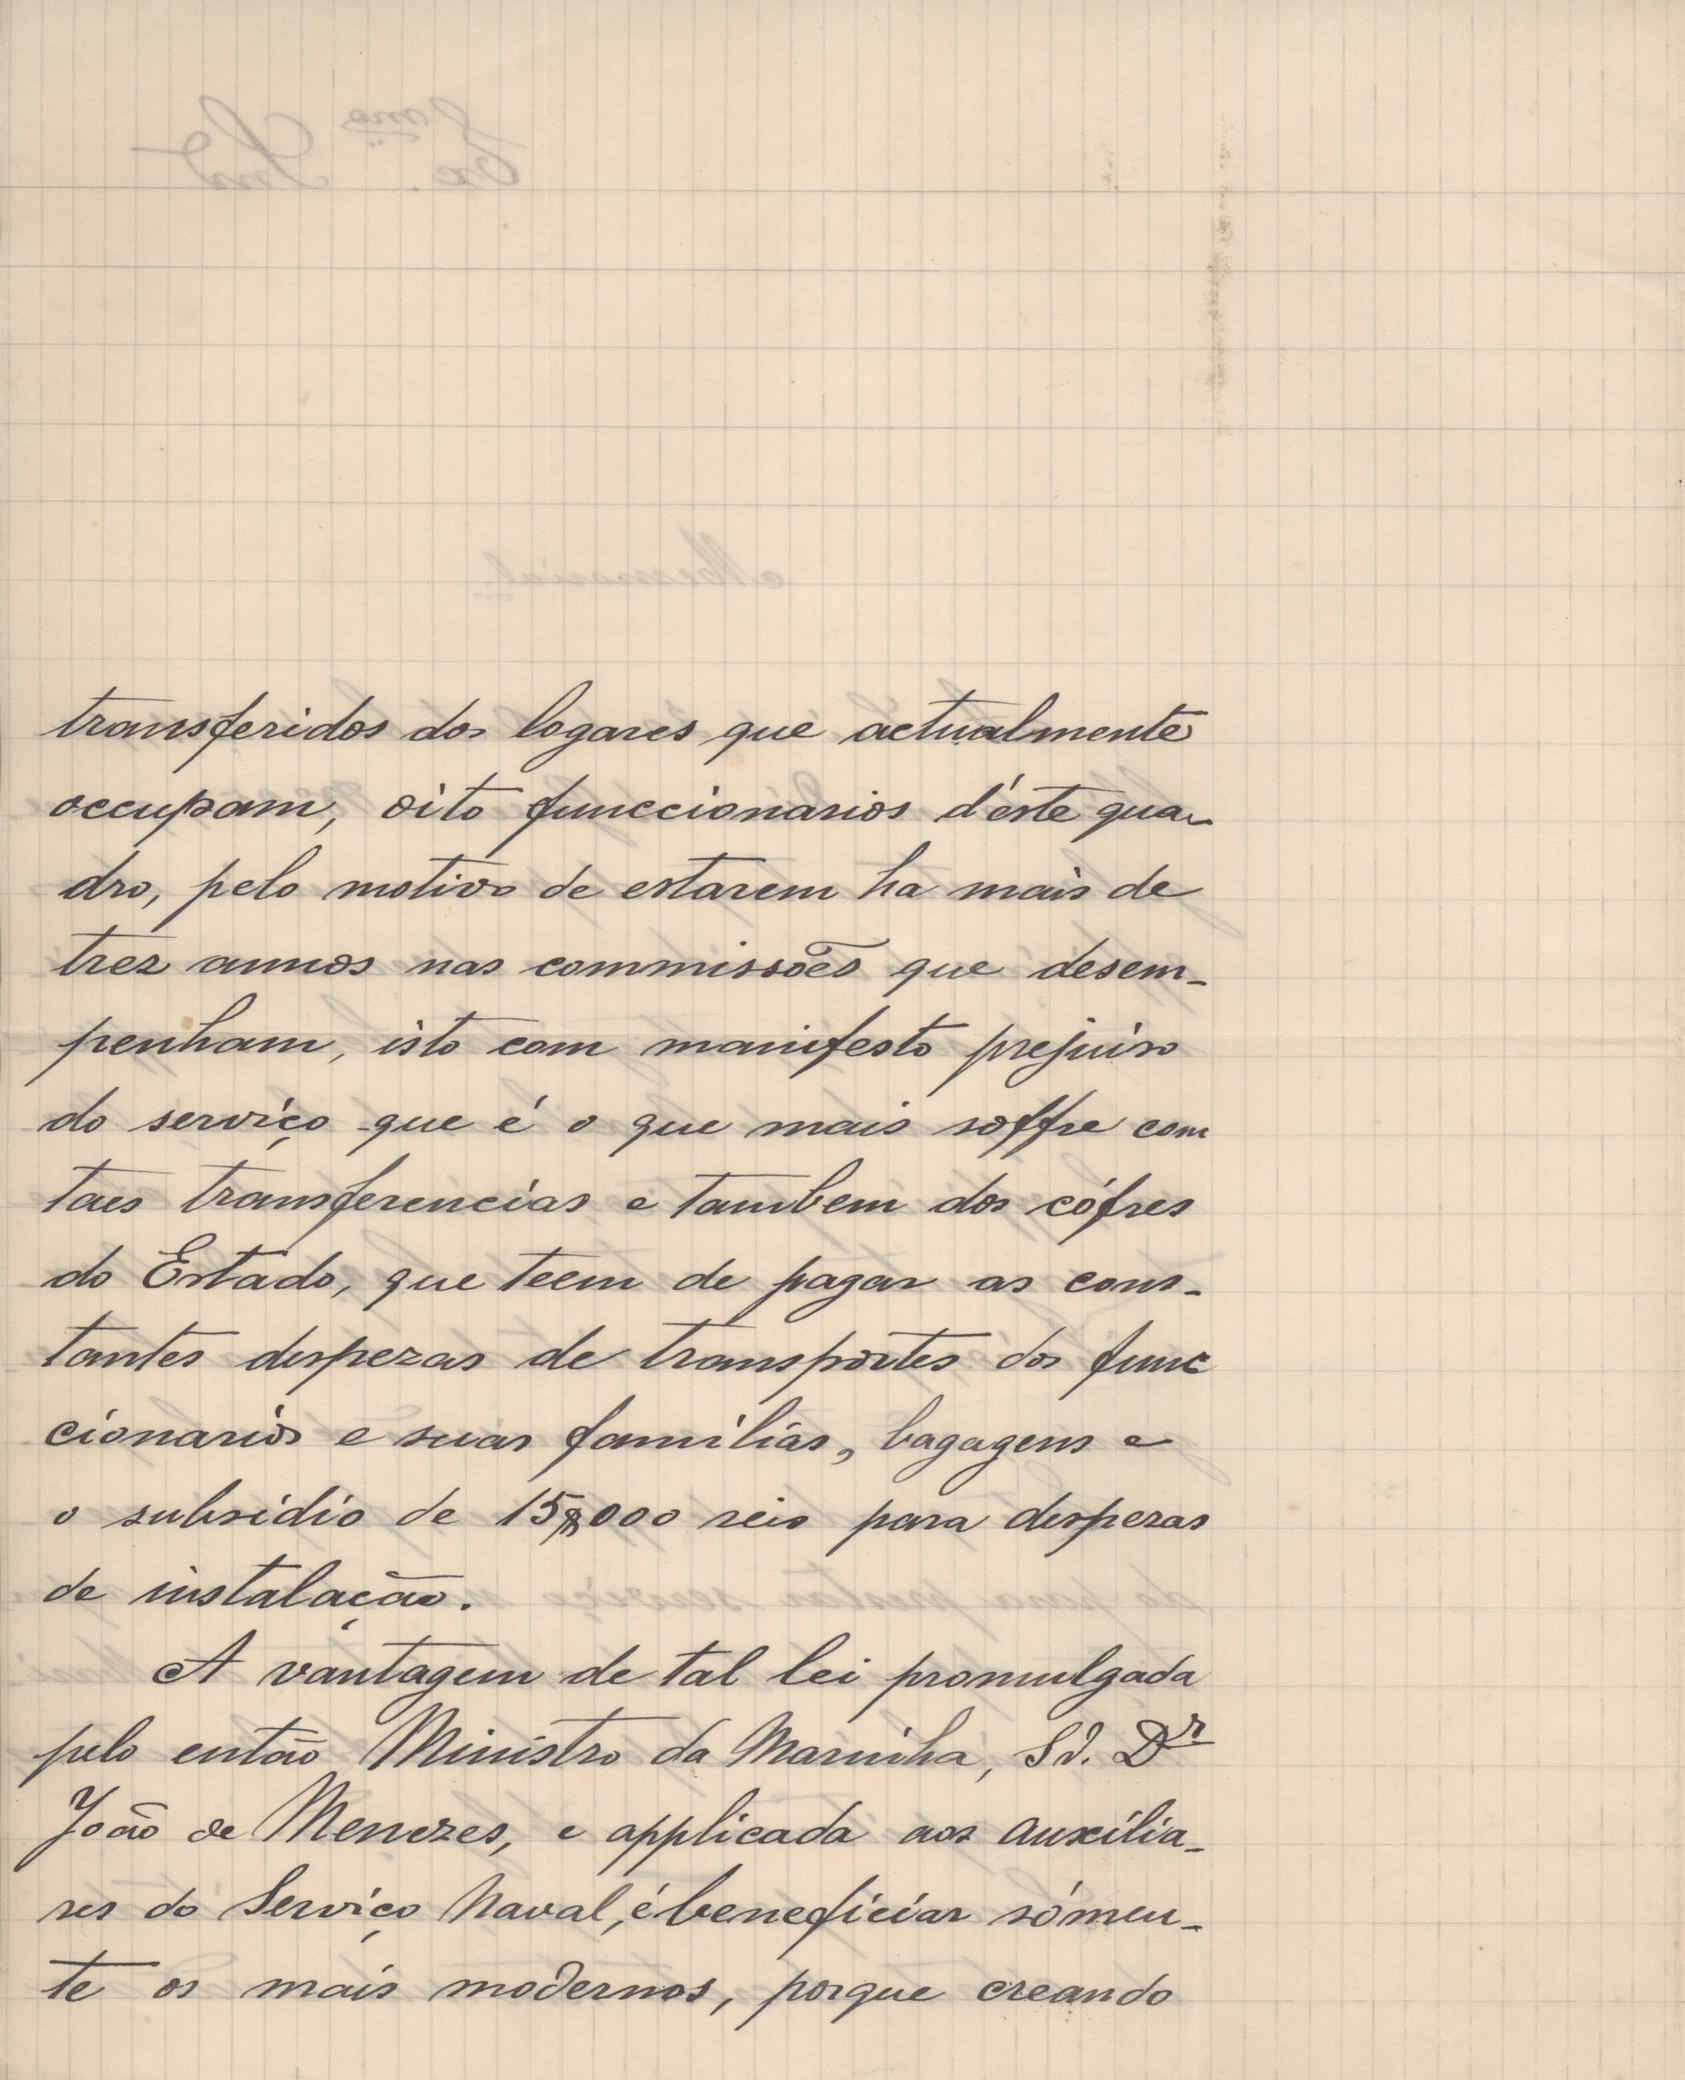 transferidos dos logares que actualmente
occupam, oito funccionarios d'éste qua-
dro, pelo motivo de estarem ha mais de
trez annos nas commissões que desem-
penham, isto com manifesto prejuiso
do serviço que é o que mais soffre com
taes transferencias e tambem dos cófres
do Estado, que teem de pagar as cons-
tantes despezas de transportes dos func
cionarios e suas familias, bagagens e
o subsidio de 15$000 reis para despezas
de instalação.
A vantagem de tal lei promulgada
pelo então Ministro da Marinha, Sr. Dr
João de Menezes, e applicada aos auxilia-
res do Serviço Naval, é beneficiar sómen-
te os mais modernos, porque creando